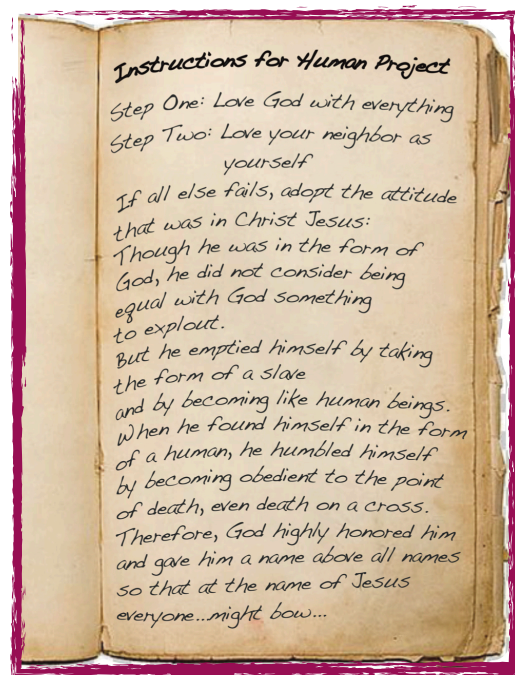 Instructions for Human Project
Step One: Love God with everything
Step Two: Love your neighbor as
yourself
If all else fails, adopt the attitude
that was in Christ Jesus:
Though he was in the form of
God, he did not consider being
equal with God something
to explout.
But he emptied himself by taking
the form of a slave
and by becoming like human beings.
When he found himself in the form
of a human, he humbled himself
by becoming obedient to the point
of death, even death on a cross.
Therefore, God highly honored him
and gave him a name above all names
so that at the name of Jesus
everyone...might bow...